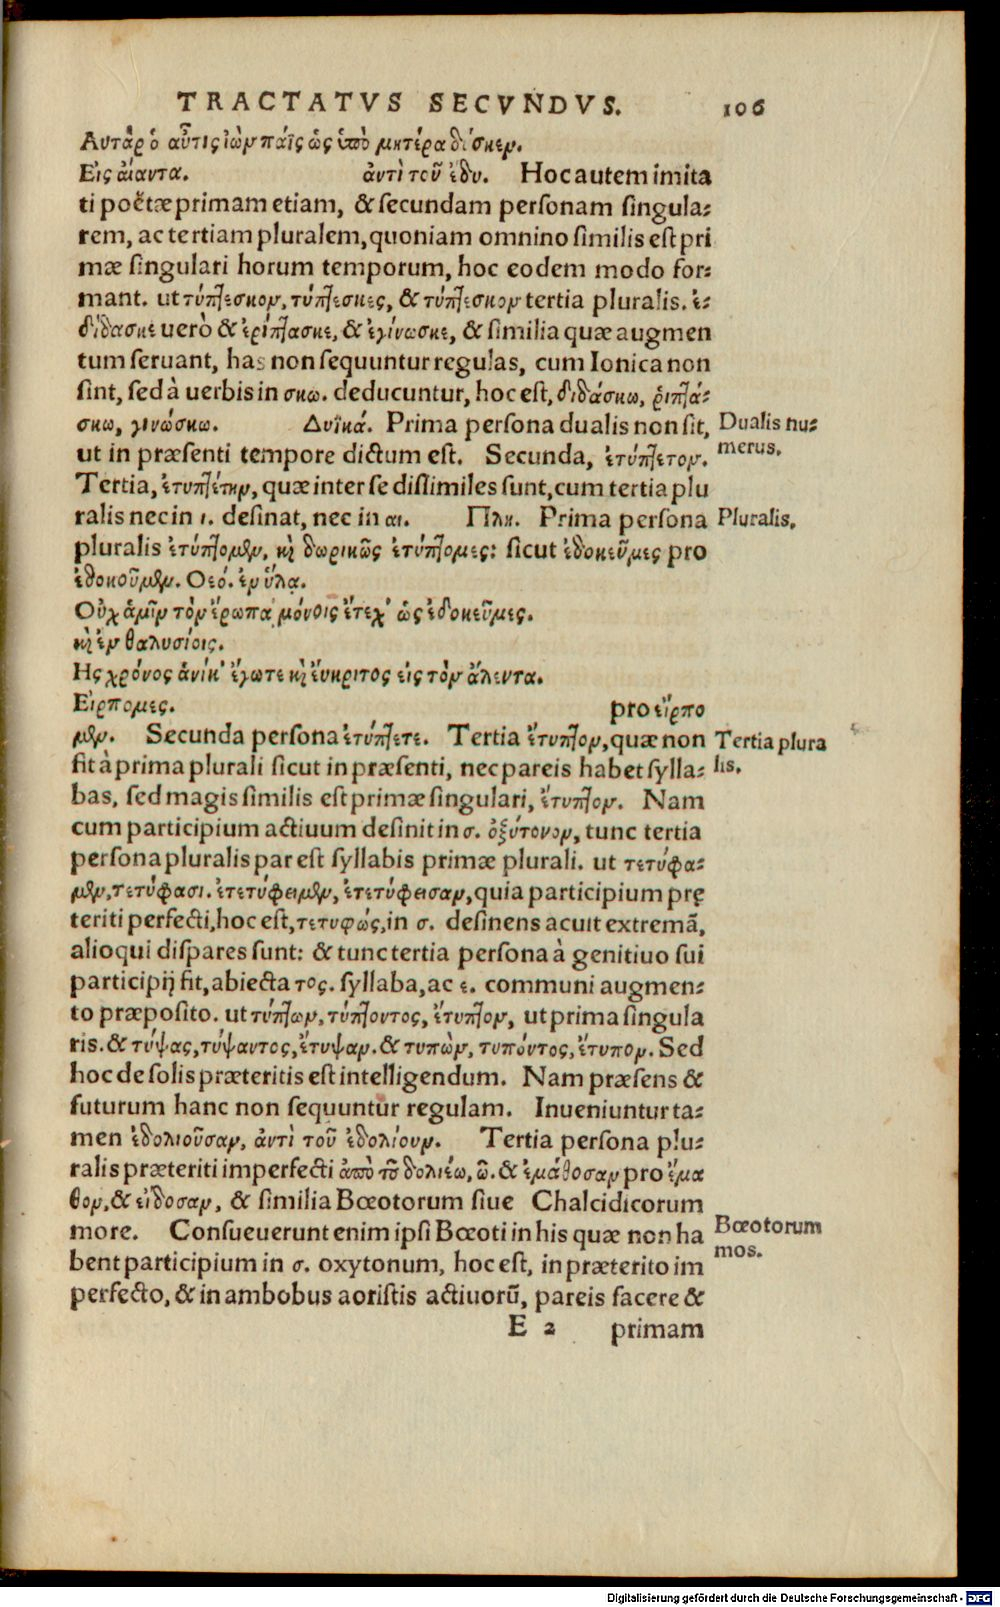 TRACTATVS SECVNDVS. 106
Αυτὰρ ὁ αὖτις ἰὼν πάϊς ὣς ὑπὸ μητέρα δύσκεν.
Εἰς αἴαντα. ἀντὶ τοῦ ἔδυ. Hoc autem imita
ti poëtæ primam etiam, & secundam personam singula:
rem, ac tertiam pluralem, quoniam omnino similis est pri
mæ singulari horum temporum, hoc eodem modo for:
mant. ut τύπτεσκον, τύπτεσκες, & τύπτεσκον tertia pluralis. ἐ:
δίδασκε uerò & ἐρίπτασκε, & ἐγίνωσκε, & similia quæ augmen
tum seruant, has non sequuntur regulas, cum Ionica non
sint, sed à uerbis in σκω. deducuntur, hoc est, διδάσκω, ῥιπτά:
σκω, γινώσκω. Δυϊκά. Prima persona dualis non sit,
Dualis nu:
merus.
ut in præsenti tempore dictum est. Secunda, ἐτύπτετον.
Tertia, ἐτυπτέτην, quæ inter se dissimiles sunt, cum tertia plu
ralis nec in ι. desinat, nec in αι. Πλη. Prima persona
Pluralis.
pluralis ἐτύπτομεν, κὶ δωρικῶς ἐτύπτομες: sicut ἐδοκεῦμες pro
ἐδοκοῦμεν. Θεό. ἐν ὕλᾳ.
Οὐχ ἁμῖν τὸν ἔρωτα μόνοις ἔτεχ' ὡς ἐδοκεῦμες.
κὶ ἐν θαλυσίοις.
Ης χρόνος ἁνίκ' ἐγώτε κὶ ἔυκριτος εἰς τὸν ἅλεντα.
Εἵρπομες. pro εἵρπο
μεν. Secunda persona ἐτύπτετε. Tertia ἔτυπτον, quæ non
Tertia plura
lis.
fit à prima plurali sicut in præsenti, nec pareis habet sylla:
bas, sed magis similis est primæ singulari, ἔτυπτον. Nam
cum participium actiuum desinit in σ. ὀξύτονον, tunc tertia
persona pluralis par est syllabis primæ plurali. ut τετύφα:
μεν, τετύφασι. ἐτετύφειμεν, ἐτετύφεισαν, quia participium prę
teriti perfecti, hoc est, τετυφώς, in σ. desinens acuit extremã,
alioqui dispares sunt: & tunc tertia persona à genitiuo sui
participij fit, abiecta τος. syllaba, ac ε. communi augmen:
to præposito. ut τύπτων, τύπτοντος, ἔτυπτον, ut prima singula
ris. & τύψας, τύψαντος, ἔτυψαν. & τυπὼν, τυπόντος, ἔτυπον. Sed
hoc de solis præteritis est intelligendum. Nam præsens &
futurum hanc non sequuntur regulam. Inueniuntur ta:
men ἐδολιοῦσαν, ἀντὶ τοῦ ἐδολίουν. Tertia persona plu:
ralis præteriti imperfecti ἀπὸ τοῦ δολιέω, ῶ. & ἐμάθοσαν pro ἔμα
θον, & εἴδοσαν, & similia Bœotorum siue Chalcidicorum
more. Consueuerunt enim ipsi Bœoti in his quæ non ha
Bœotorum
mos.
bent participium in σ. oxytonum, hoc est, in præterito im
perfecto, & in ambobus aoristis actiuorũ, pareis facere &
E 2 primam
Digitalisierung gefördert durch die Deutsche Forschungsgemeinschaft - DFG